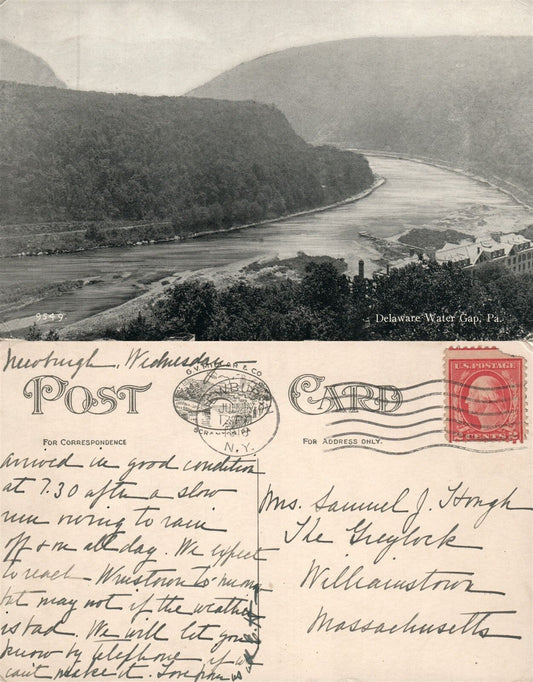 9549
Delaware Water Gap, Pa.
Newburgh, Wednesday
POST CARD
SCRANTON PA
N.Y.
U.S. POSTAGE
2 CENTS 2
FOR CORRESPONDENCE
FOR ADDRESS ONLY.
arrived in good condition
at 7.30 after a slow
run owing to rain
off & on all day. We expect
to reach Wmstown
but may not if the weather
is bad. We will let you
know by telephone if we
can't make it.
Mrs. Samuel J. Hough
The Greylock
Williamstown
Massachusetts